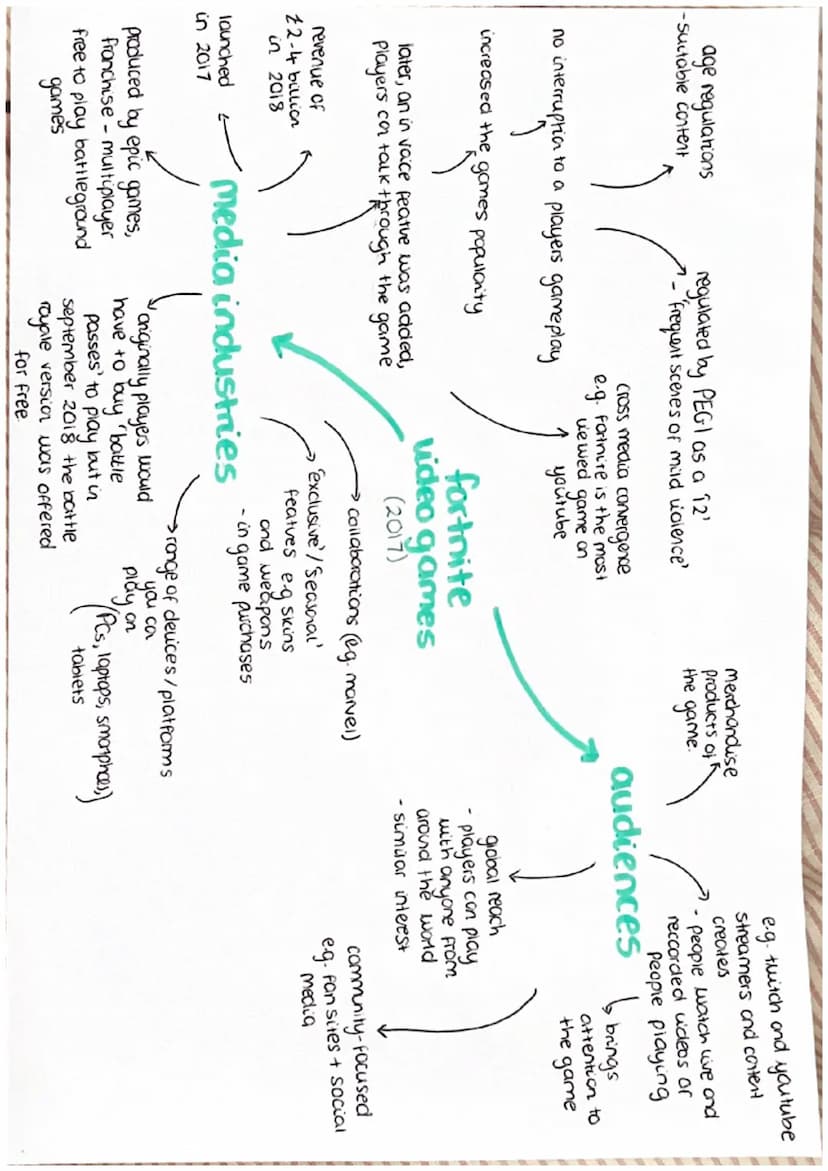 fortnite
video games
(2017)
media industries
launched
in 2017
revenue of
£2-4 billion
in 2018
later, an in voice featve was added,
players can talk through the game
increased the games popularity
no interruption to a players gameplay
age regulations
- suitable content
regulated by PEGI as a '12'
- 'frequent scenes of mild violence'
cross media convergence
e.g. fortnite is the most
viewed game on
youtube
collaborations (e.g. marvel)
'exclusive'/'seasonal'
featves e.g skins
and weapons
- in game purchases
range of devices/platforms
you can
play on
(PCs, laptops, smartphones,)
tablets
'originally players would
have to buy 'battle
passes' to play but in
september 2018 the battle
royale version was offered
for free.
produced by epic games,
franchise - multiplayer
free to play battleground
games
audiences
merchandise
products of
the game.
e.g. twitch and youtube
streamers and content
creates
- people watch live and
reccorded videos of
people playing
brings
attention to
the game
global reach
- players can play
with anyone from
around the world
- similar interest
community-focused
e.g. fan sites + social
media